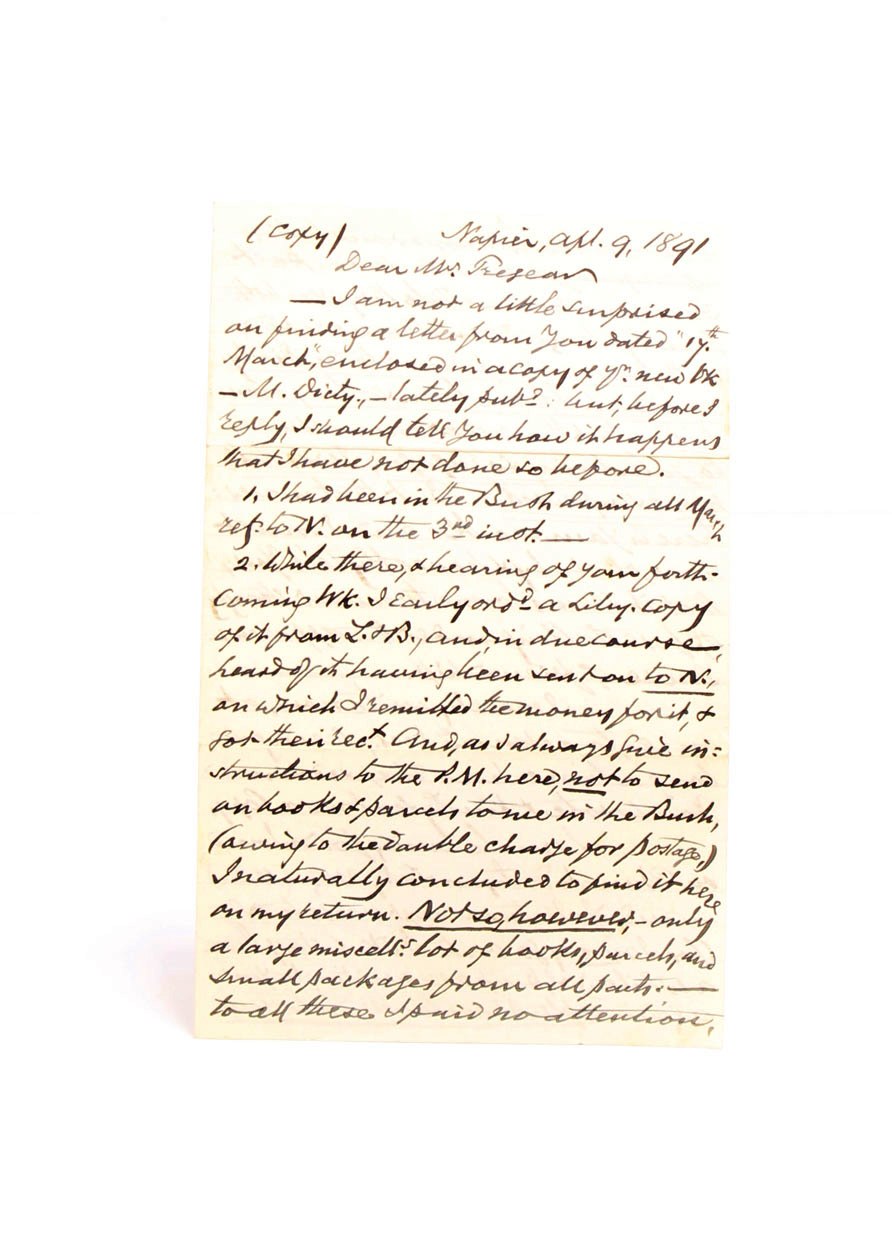 (Copy) Napier, Apl. 9, 1891
Dear Mr. Tregear
— I am not a little surprised
on finding a letter from you dated "17th.
March", enclosed in a copy of yr. new Wk
– M. Dicty., – lately pubd.: but, before I
reply, I should tell you how it happens
that I have not done so before.
1. I had been in the Bush during all March
retg. to N. on the 3rd inst. —
2. While there, & hearing of your forth-
coming Wk. I early ordd. a Liby. copy
of it from L. & B., and, in due course,
heard of its having been sent on to N.,
on which I remitted the money for it, &
got their rect. And, as I always give in=
structions to the P.M. here, not to send
on books & parcels to me in the Bush,
(owing to the double charge for postage,)
I naturally concluded to find it here
on my return. Not so, however, – only
a large miscells. lot of books, parcels, and
small packages from all parts. —
to all these I paid no attention,